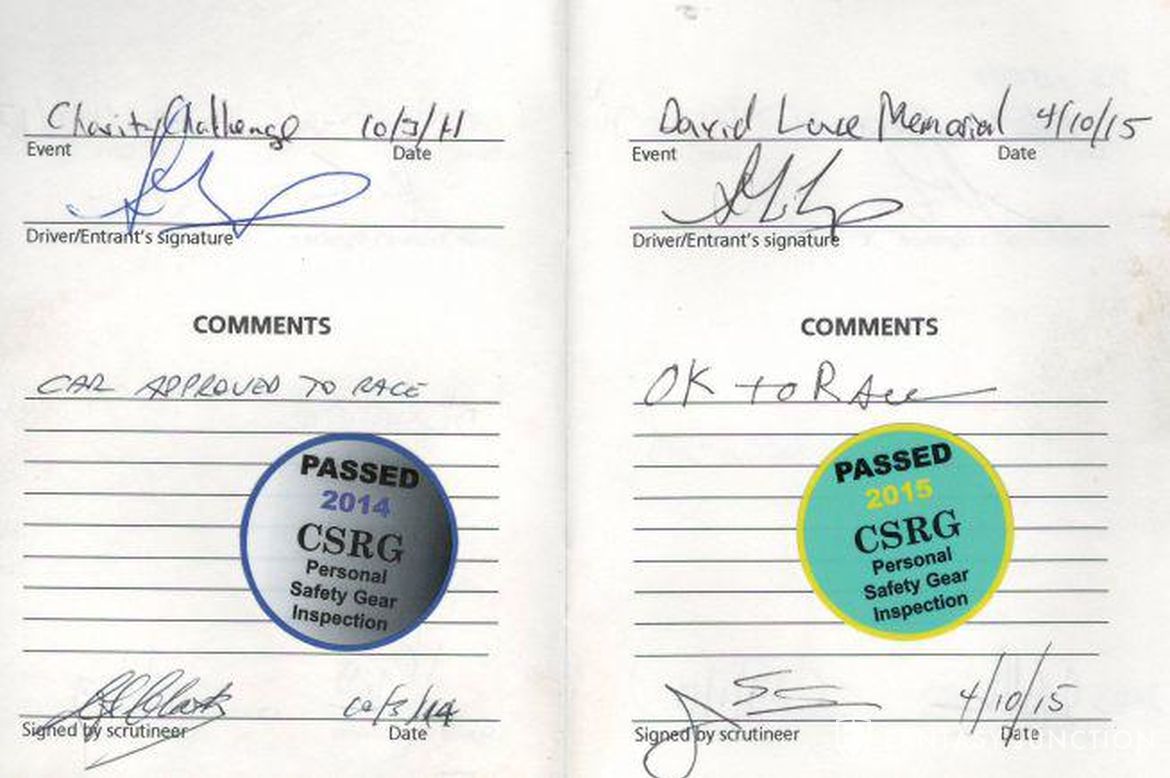 Charity Challenge 10/3/14
Event Date
Driver/Entrant's signature
COMMENTS
CAR APPROVED TO RACE
PASSED
2014
CSRG
Personal
Safety Gear
Inspection
10/3/14
Signed by scrutineer Date
David Love Memorial 4/10/15
Event Date
Driver/Entrant's signature
COMMENTS
OK to RAce
PASSED
2015
CSRG
Personal
Safety Gear
Inspection
4/10/15
Signed by scrutineer Date
FANTASY JUNCTION